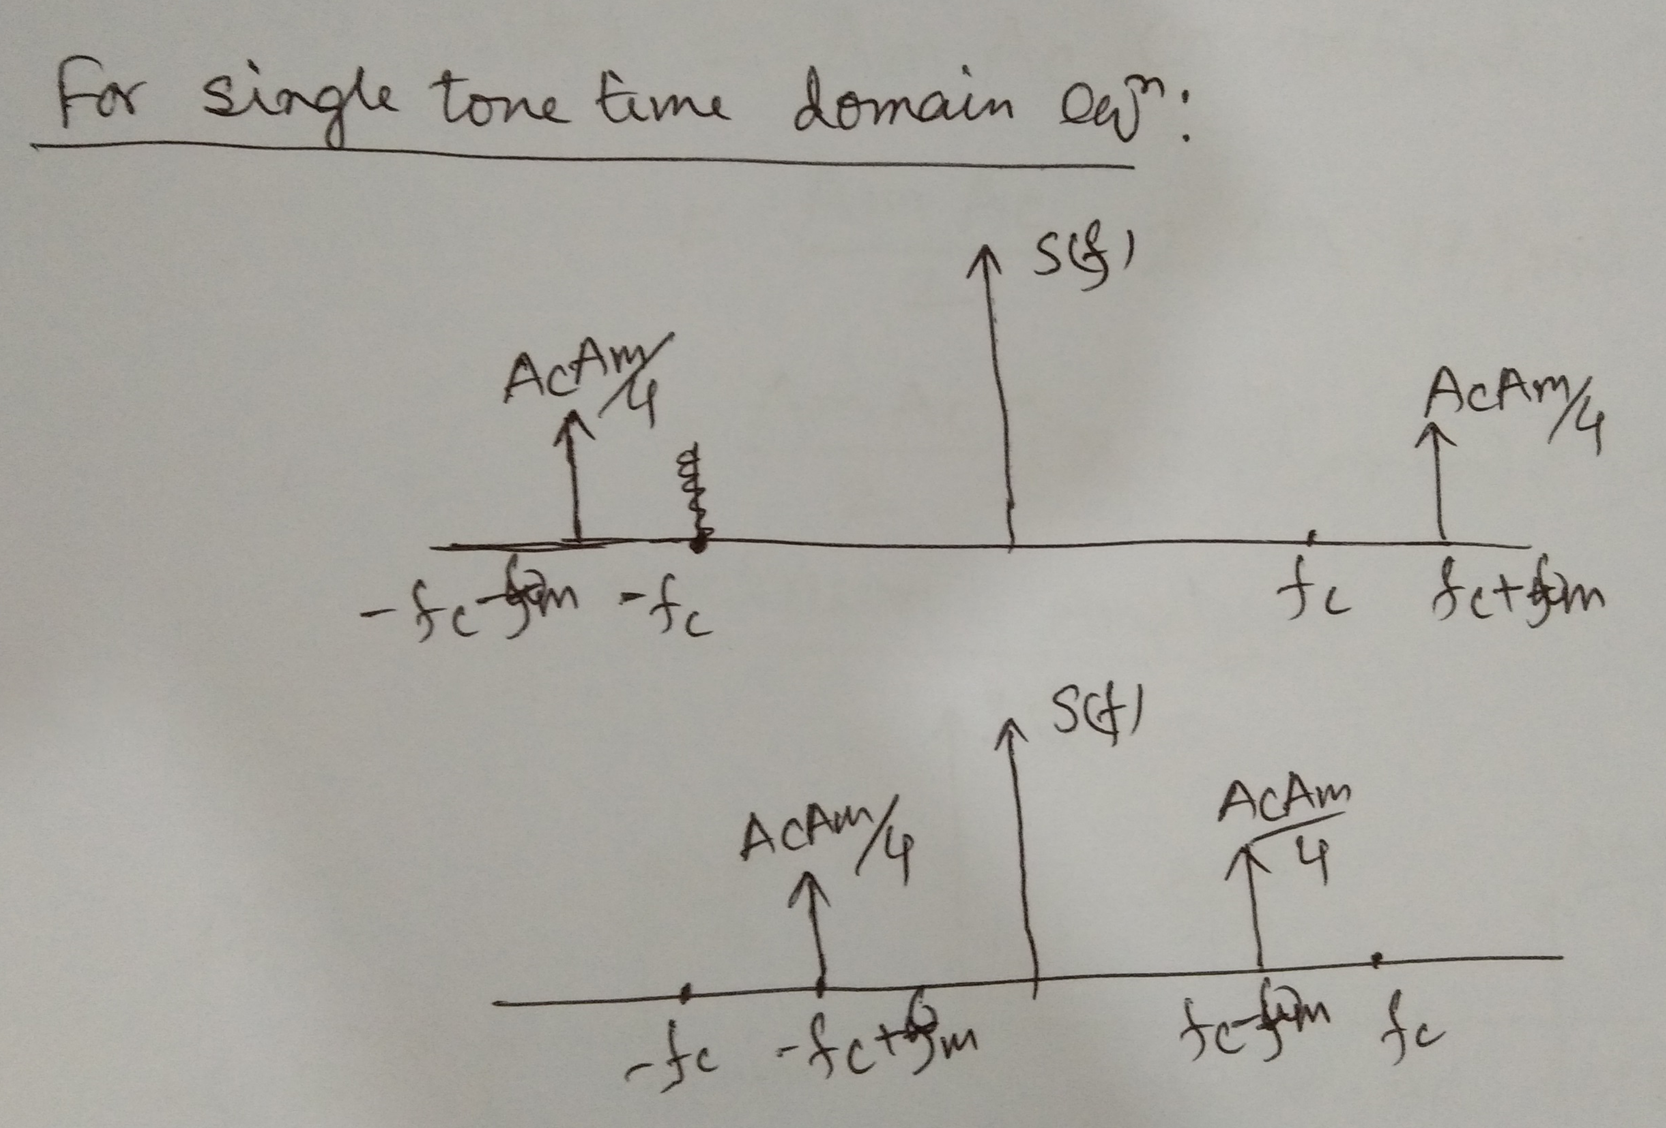 For single tone time domain eqⁿ:
S(f)
AcAm/4
AcAm/4
-fc-fm -fc fc fc+fm
S(f)
AcAm/4
AcAm/4
-fc -fc+fm fc-fm fc